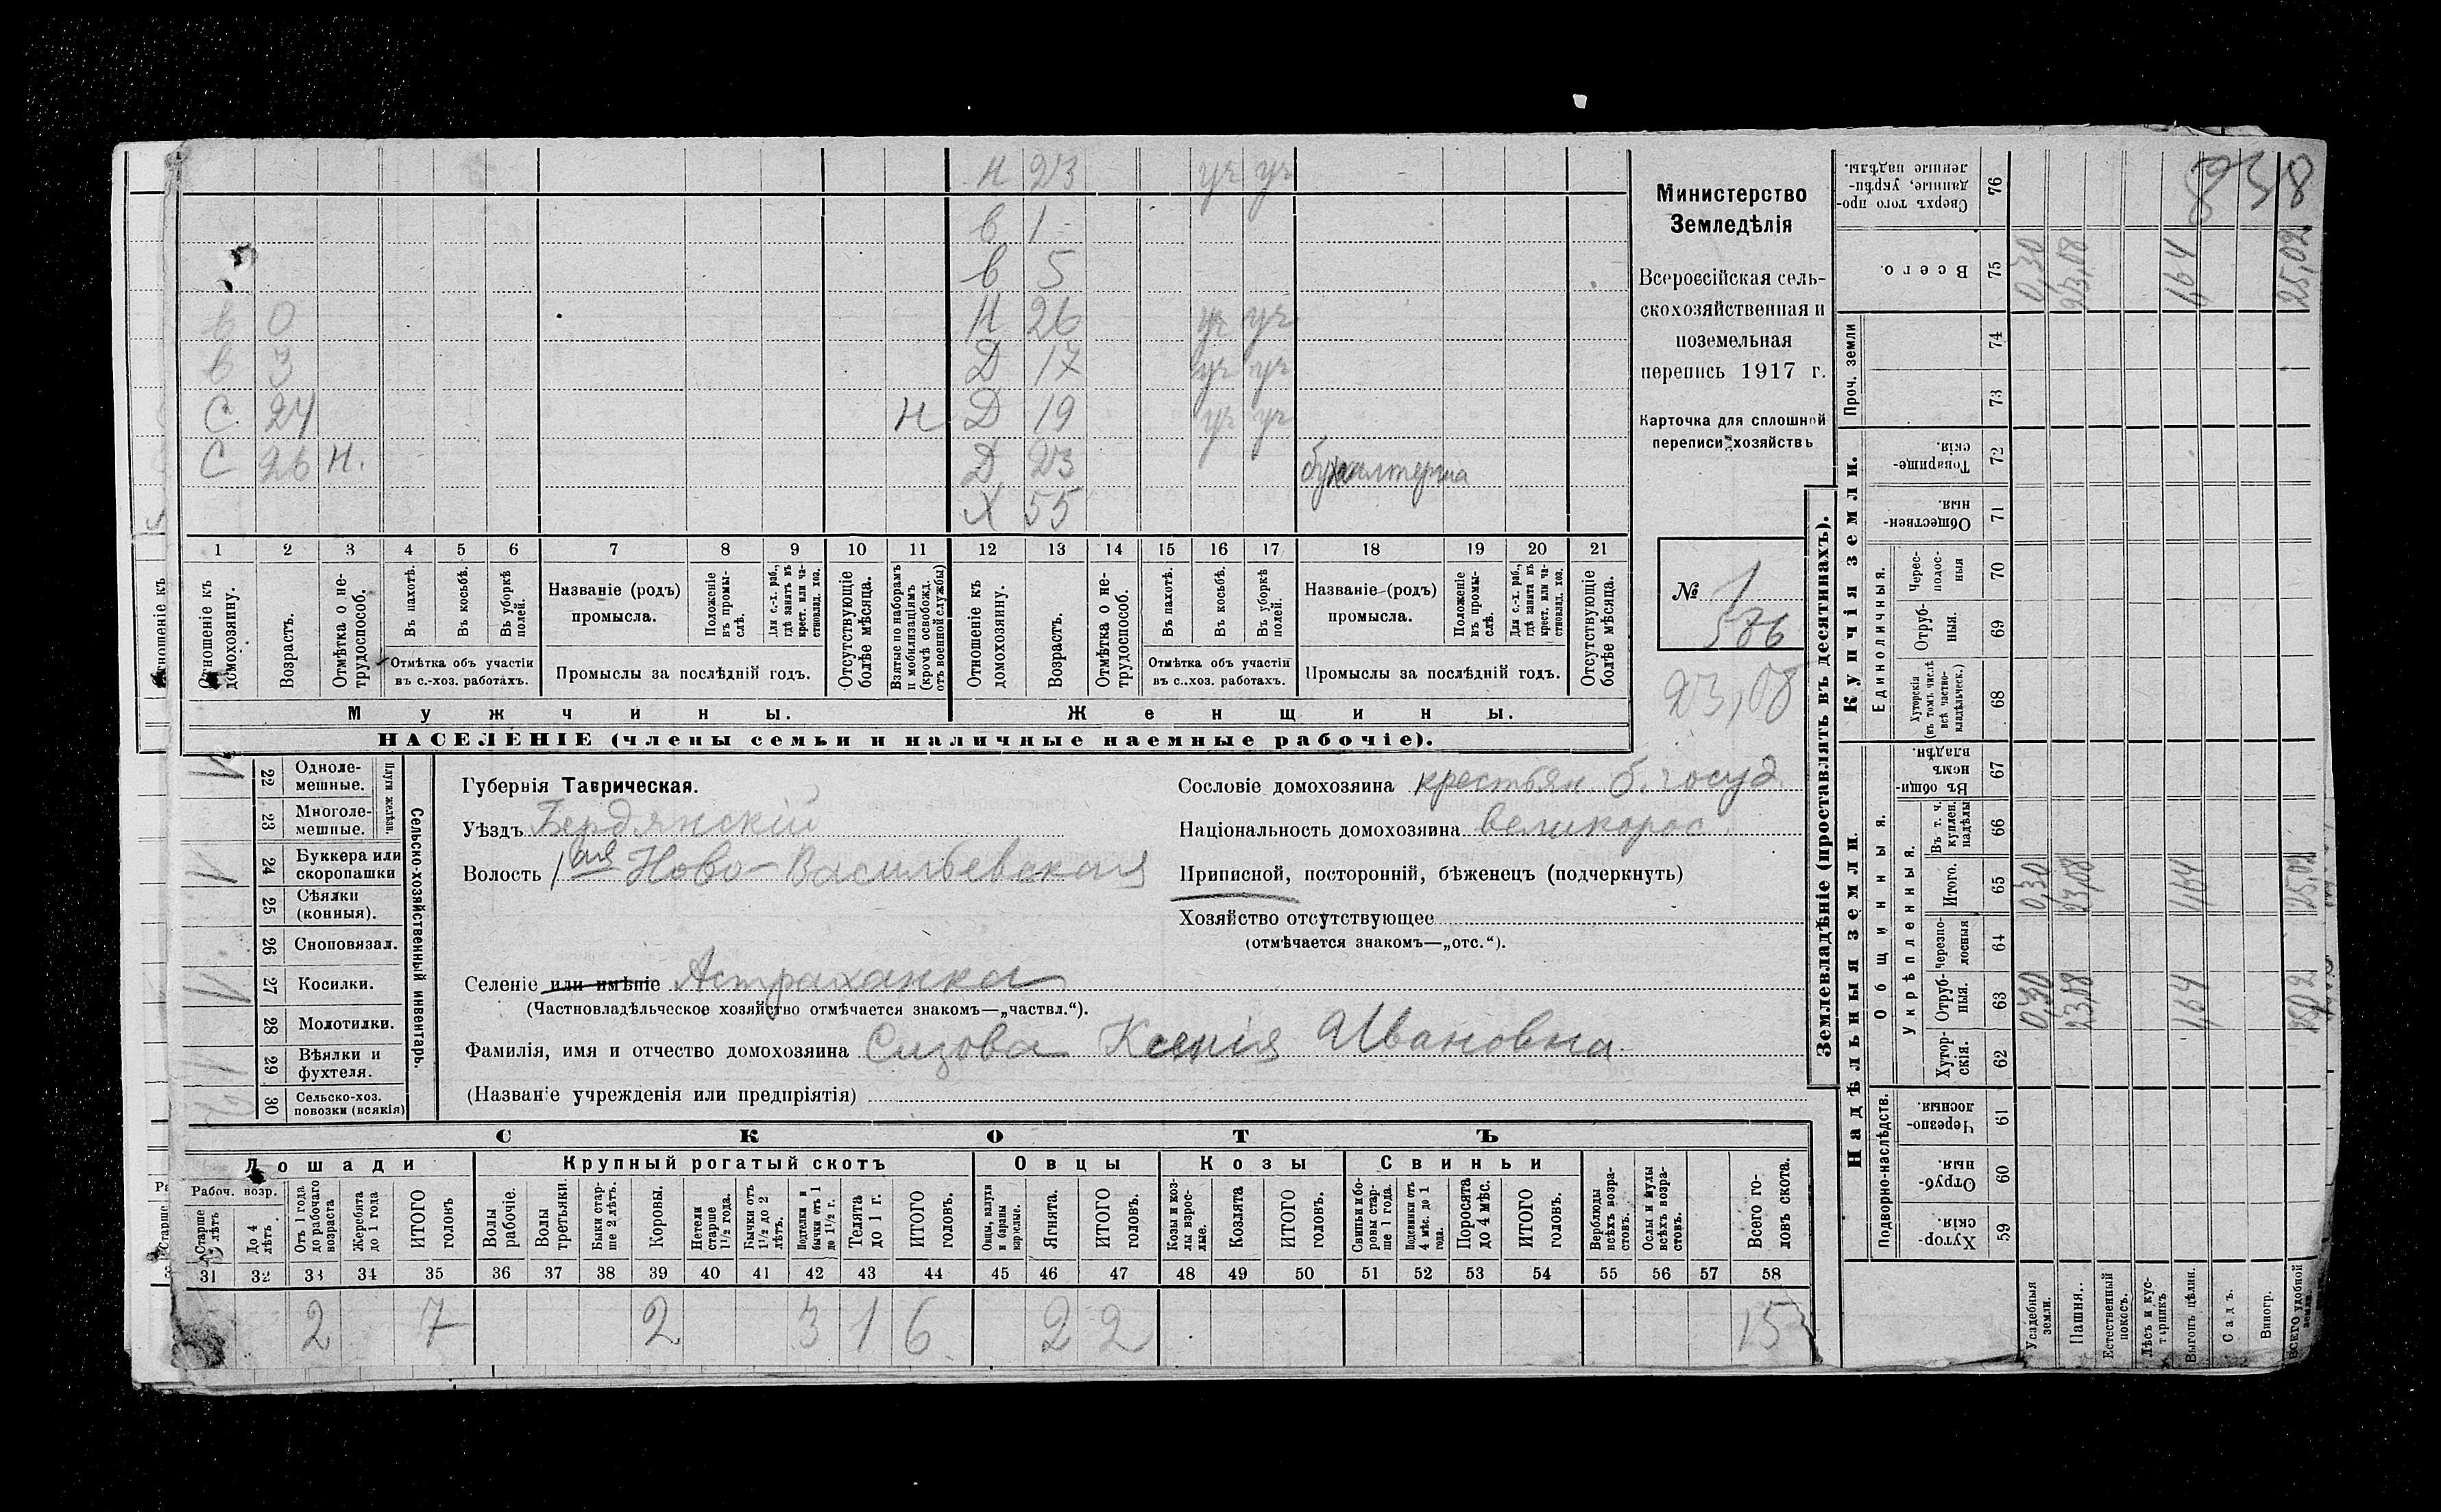 Н 23 уч уч
в 1
в 5
в 0 Н 26 уч уч
в 3 Д 17 уч уч
С 24 Н Д 19 уч уч
С 26 Н. Д 23 бухгалтерша
Х 55
1 2 3 4 5 6 7 8 9 10 11 12 13 14 15 16 17 18 19 20 21
Отношеніе къ домохозяину.
Возрастъ.
Отмѣтка о не-трудоспособ.
Въ пахотѣ.
Въ косьбѣ.
Въ уборкѣ полей.
Отмѣтка объ участіи
въ с.-хоз. работахъ.
Названіе (родъ)
промысла.
Положеніе въ промы-слѣ.
Для с.-х. раб., гдѣ занятъ въ крест. или ча-стновлад. хоз.
Промыслы за послѣдній годъ.
Отсутствующіе болѣе мѣсяца.
Взятые по наборамъ и мобилизаціямъ (кромѣ освобожд. отъ военной службы)
Отношеніе къ домохозяину.
Возрастъ.
Отмѣтка о не-трудоспособ.
Въ пахотѣ.
Въ косьбѣ.
Въ уборкѣ полей.
Отмѣтка объ участіи
въ с.-хоз. работахъ.
Названіе (родъ)
промысла.
Положеніе въ промы-слѣ.
Для с.-х. раб., гдѣ занята въ крест. или ча-стновлад. хоз.
Промыслы за послѣдній годъ.
Отсутствующіе болѣе мѣсяца.
Мужчины.
Женщины.
НАСЕЛЕНІЕ (члены семьи и наличные наемные рабочіе).
Министерство
Земледѣлія
Всероссійская сель-
скохозяйственная и
поземельная
перепись 1917 г.
Карточка для сплошной
переписи хозяйствъ
№ 1
576
23,08
22 Одноле-мешные.
23 Многоле-мешные.
Плуги желѣзн.
24 Буккера или скоропашки
25 Сѣялки (конныя).
26 Сноповязал.
27 Косилки.
28 Молотилки.
29 Вѣялки и фухтеля.
30 Сельско-хоз. повозки (всякія)
Сельско-хозяйственный инвентарь.
Губернія Таврическая.
Уѣздъ Бердянскій
Волость 1ая Ново-Васильевская
Селеніе или имѣніе Астраханка
(Частновладѣльческое хозяйство отмѣчается знакомъ—„частвл.“).
Фамилія, имя и отчество домохозяина Сизова Ксенія Ивановна
(Названіе учрежденія или предпріятія)
Сословіе домохозяина крестьян. б. госуд
Національность домохозяина великорос.
Приписной, посторонній, бѣженецъ (подчеркнуть)
Хозяйство отсутствующее
(отмѣчается знакомъ—„отс.“).
СКОТЪ
Лошади
Крупный рогатый скотъ
Овцы
Козы
Свиньи
Рабоч. возр.
Старше лѣтъ
До 4 лѣтъ
Отъ 1 года до рабочаго возраста
Жеребята до 1 года
ИТОГО головъ
Волы рабочіе.
Волы третьяки.
Быки стар-ше 2 лѣтъ.
Коровы.
Нетели старше 1½ года.
Бычки отъ 1½ до 2 лѣтъ.
Подтелки и бычки отъ 1 до 1½ г.
Телята до 1 г.
ИТОГО головъ.
Овцы, валухи и бараны взрослые.
Ягнята.
ИТОГО головъ.
Козы и коз-лы взрос-лые.
Козлята
ИТОГО головъ.
Свиньи и бо-ровы стар-ше 1 года.
Подсвинки отъ 4 мѣс. до 1 года.
Поросята до 4 мѣс.
ИТОГО головъ.
Верблюды всѣхъ возра-стовъ.
Ослы и мулы всѣхъ возра-стовъ.
Всего го-ловъ скота.
31 32 33 34 35 36 37 38 39 40 41 42 43 44 45 46 47 48 49 50 51 52 53 54 55 56 57 58
2 7 2 3 1 6 2 2 15
Землевладѣніе (проставлять въ десятинахъ).
Купчія земли.
Надѣльныя земли.
Сверхъ того про-данные, укрѣп-ленные надѣлы. 76
Всего. 75
Проч. земли 74 73
Товарище-скія. 72
Обществен-ныя. 71
Единоличныя.
Черес-полос-ныя 70
Отруб-ныя. 69
Хуторскія (въ томъ числѣ всѣ частно-владѣльческ.) 68
Общинныя.
Въ общи-номъ владѣн. 67
Укрѣпленныя.
Въ т. ч. куплен. надѣлы 66
Итого. 65
Черезпо-лосныя 64
Отруб-ныя. 63
Хутор-скія. 62
Подворно-наслѣдств.
Черезпо-лосныя. 61
Отруб-ныя. 60
Хутор-скія. 59
Усадебныя земли. 0,30 0,30 0,30
Пашня. 23,08 23,08 23,08
Естественный покосъ.
Лѣсъ и кус-тарникъ
Выгонъ цѣлин. 1,64 1,64 1,64
Садъ.
Виногр.
ВСЕГО удобной земли. 25,02 25,02 25,02
838